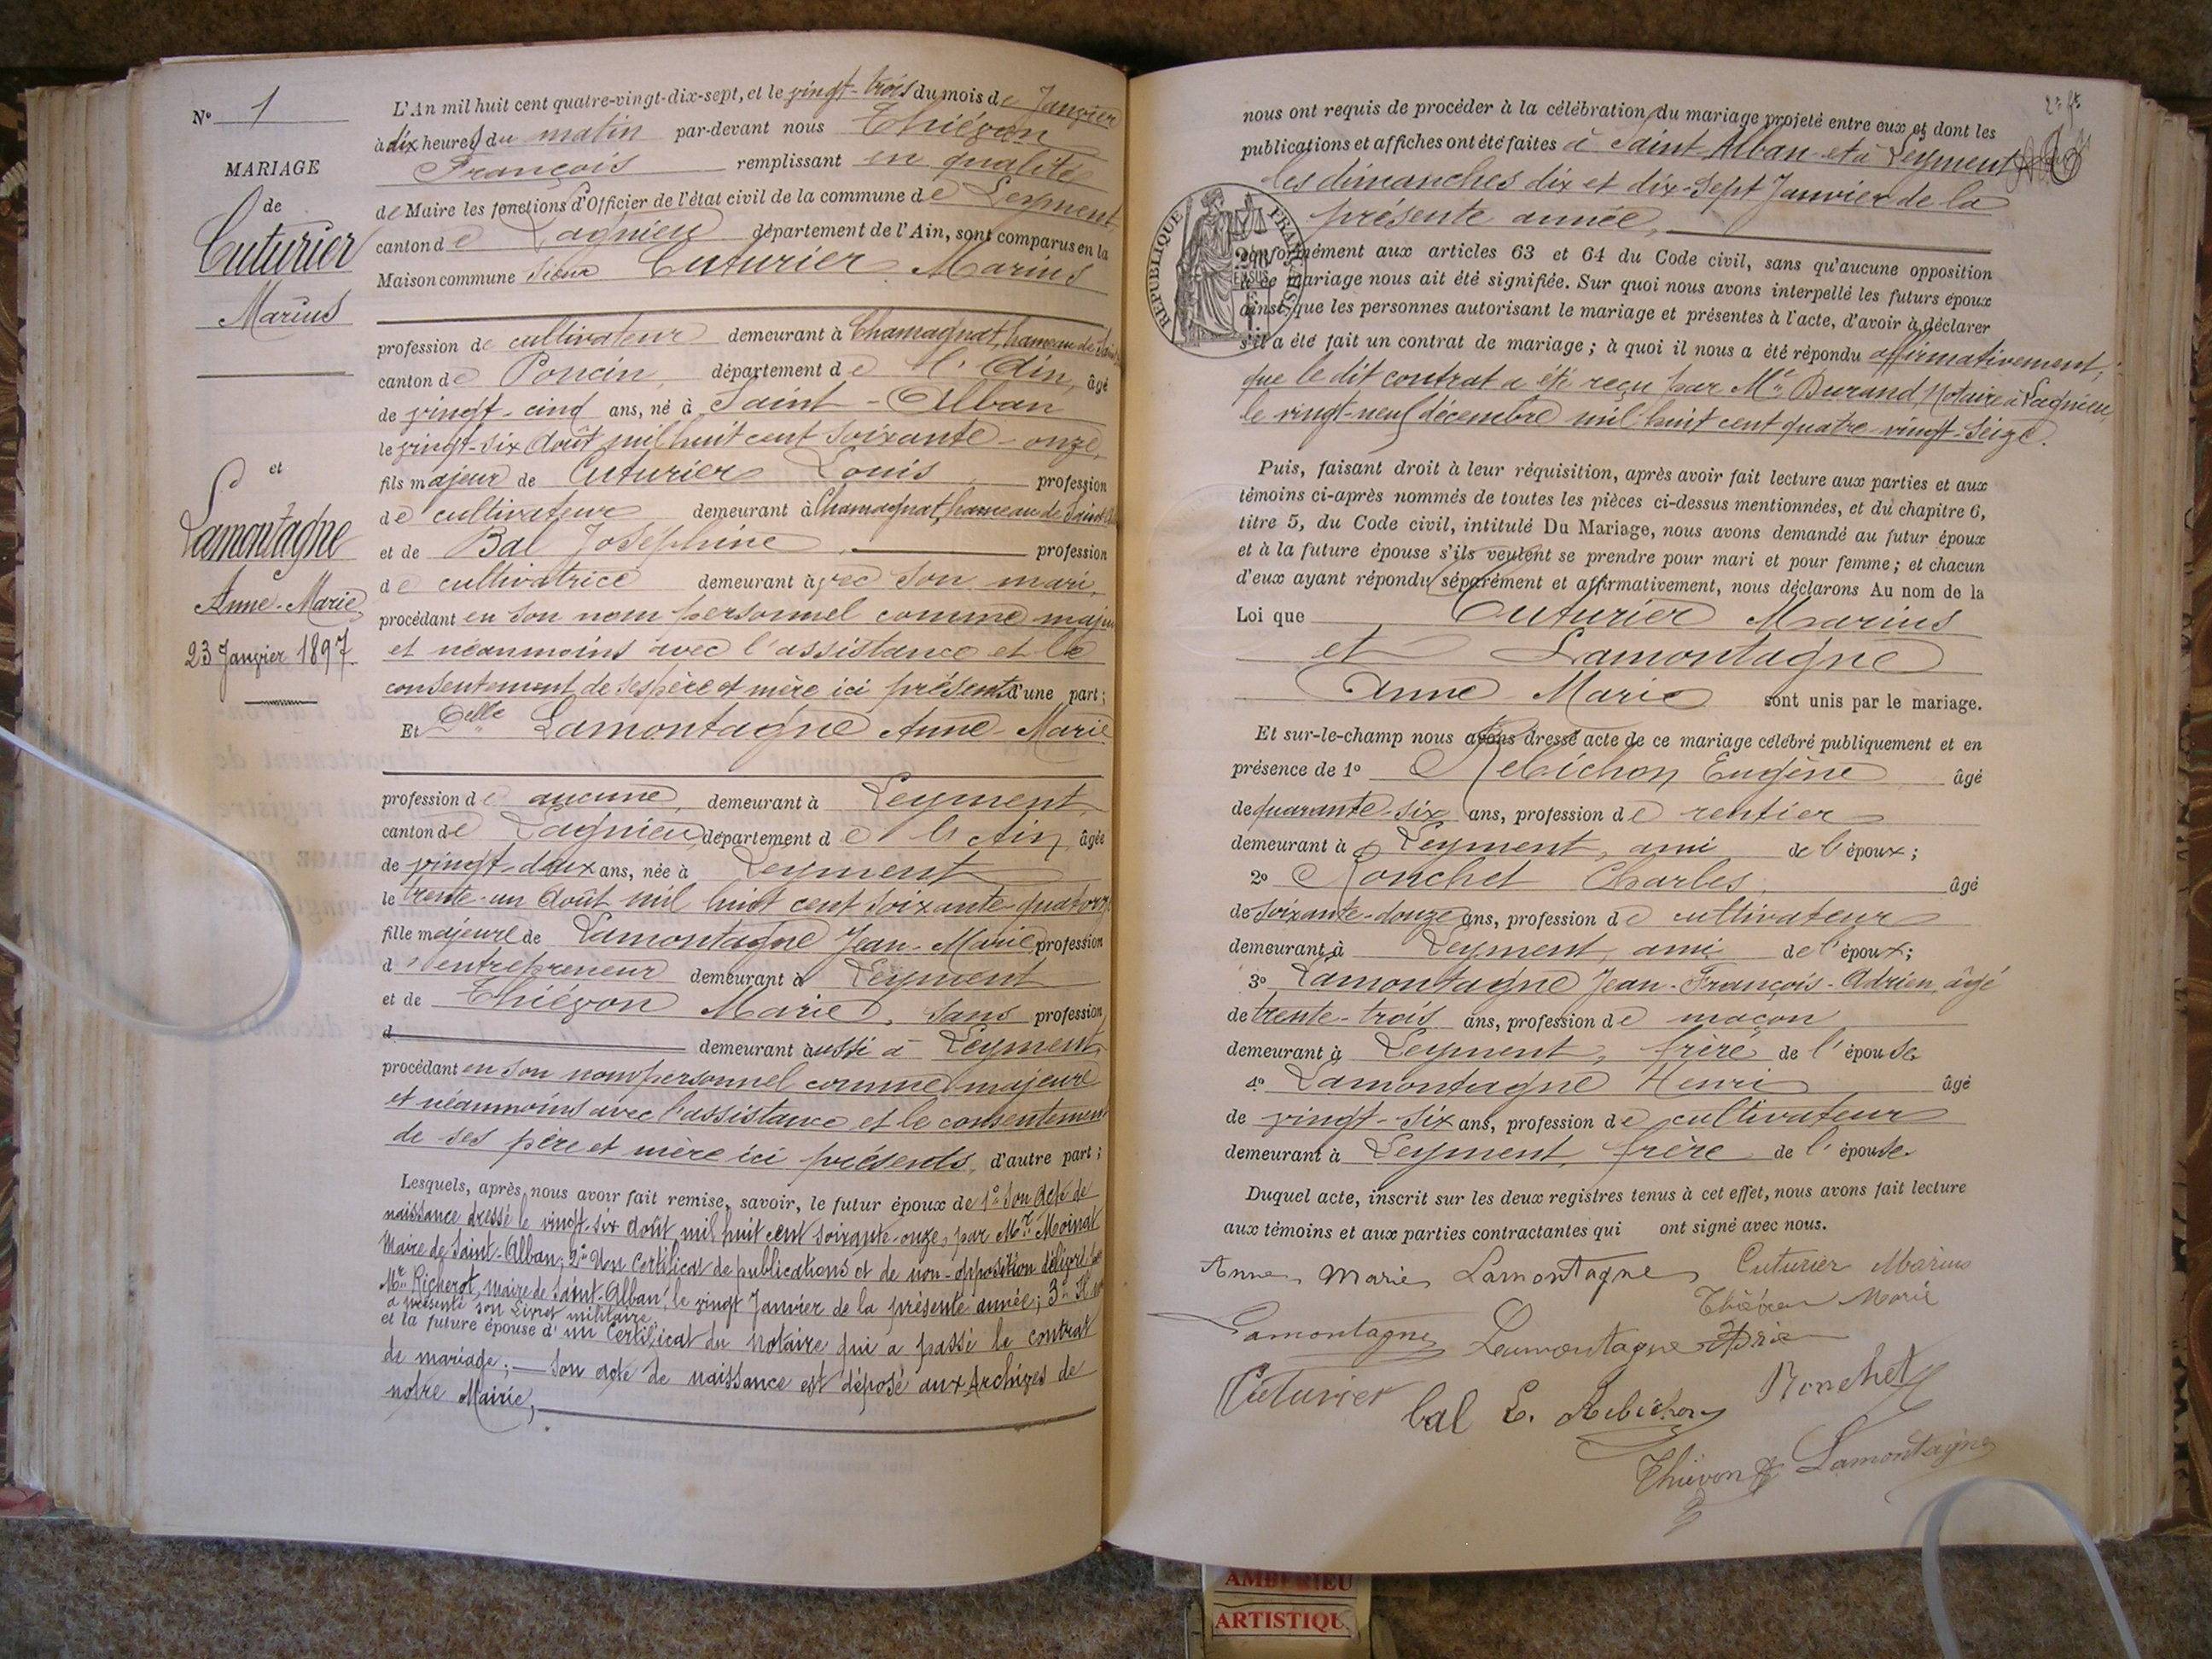 N° 1
MARIAGE
de
Cuturier
Marius
et
Lamontagne
Anne-Marie
23 Janvier 1897.
L'An mil huit cent quatre-vingt-dix-sept, et le vingt-trois du mois de Janvier
à dix heures du matin par-devant nous Thiévon
François remplissant en qualité
de Maire les fonctions d'Officier de l'état civil de la commune de Leyment,
canton de Lagnieu département de l'Ain, sont comparus en la
Maison commune sieur Cuturier Marius
profession de cultivateur demeurant à Chamagnat, hameau de
canton de Poncin, département de l'Ain, âgé
de vingt-cinq ans, né à Saint-Alban
le vingt-six Août mil huit cent soixante-onze,
fils majeur de Cuturier Louis profession
de cultivateur demeurant à Chamagnat, hameau de Saint
et de Bal Joséphine, profession
de cultivatrice demeurant avec son mari,
procédant en son nom personnel comme majeur
et néanmoins avec l'assistance et le
consentement de ses père et mère ici présents d'une part;
Et Delle Lamontagne Anne-Marie
profession de aucune, demeurant à Leyment,
canton de Lagnieu, département de l'Ain, âgée
de vingt-deux ans, née à Leyment
le trente-un Août mil huit cent soixante-quatorze
fille majeure de Lamontagne Jean-Marie, profession
d'entrepreneur demeurant à Leyment
et de Thiévon Marie, sans profession
d demeurant aussi à Leyment,
procédant en son nom personnel comme majeure
et néanmoins avec l'assistance et le consentement
de ses père et mère ici présents, d'autre part;
Lesquels, après nous avoir fait remise, savoir, le futur époux de 1° son Acte de
naissance dressé le vingt-six Août mil huit cent soixante-onze, par Mr Moingt
Maire de Saint-Alban; 2° Un Certificat de publications et de non-opposition délivré par
Mr Richerot, maire de Saint-Alban, le vingt Janvier de la présente année; 3° Il nous
a présenté son Livret militaire.
et la future épouse d'un Certificat du Notaire qui a passé le contrat
de mariage; son acte de naissance est déposé aux Archives de
notre Mairie,
nous ont requis de procéder à la célébration du mariage projeté entre eux et dont les
publications et affiches ont été faites à Saint-Alban et à Leyment
les dimanches dix et dix-sept Janvier de la
présente année,
RÉPUBLIQUE FRANÇAISE
conformément aux articles 63 et 64 du Code civil, sans qu'aucune opposition
à ce mariage nous ait été signifiée. Sur quoi nous avons interpellé les futurs époux
ainsi que les personnes autorisant le mariage et présentes à l'acte, d'avoir à déclarer
s'il a été fait un contrat de mariage; à quoi il nous a été répondu affirmativement;
que le dit contrat a été reçu par Me Durand Notaire à Lagnieu,
le vingt-neuf décembre mil huit cent quatre-vingt-seize.
Puis, faisant droit à leur réquisition, après avoir fait lecture aux parties et aux
témoins ci-après nommés de toutes les pièces ci-dessus mentionnées, et du chapitre 6,
titre 5, du Code civil, intitulé Du Mariage, nous avons demandé au futur époux
et à la future épouse s'ils veulent se prendre pour mari et pour femme; et chacun
d'eux ayant répondu séparément et affirmativement, nous déclarons Au nom de la
Loi que Cuturier Marius
et Lamontagne
Anne Marie sont unis par le mariage.
Et sur-le-champ nous avons dressé acte de ce mariage célébré publiquement et en
présence de 1° Rebichon Eugène âgé
de quarante-six ans, profession de rentier
demeurant à Leyment, ami de l'époux;
2° Ronchet Charles, âgé
de soixante-douze ans, profession de cultivateur
demeurant à Leyment, ami de l'époux;
3° Lamontagne Jean-François-Adrien, âgé
de trente-trois ans, profession de maçon
demeurant à Leyment, frère de l'épouse
4° Lamontagne Henri âgé
de vingt-six ans, profession de cultivateur
demeurant à Leyment, frère de l'épouse
Duquel acte, inscrit sur les deux registres tenus à cet effet, nous avons fait lecture
aux témoins et aux parties contractantes qui ont signé avec nous.
Anne Marie Lamontagne Cuturier Marius
Thiévon Marie
Lamontagne Lamontagne
Cuturier bal E. Rebichon Ronchet
Thiévon Lamontagne
AMBERIEU
ARTISTIQU